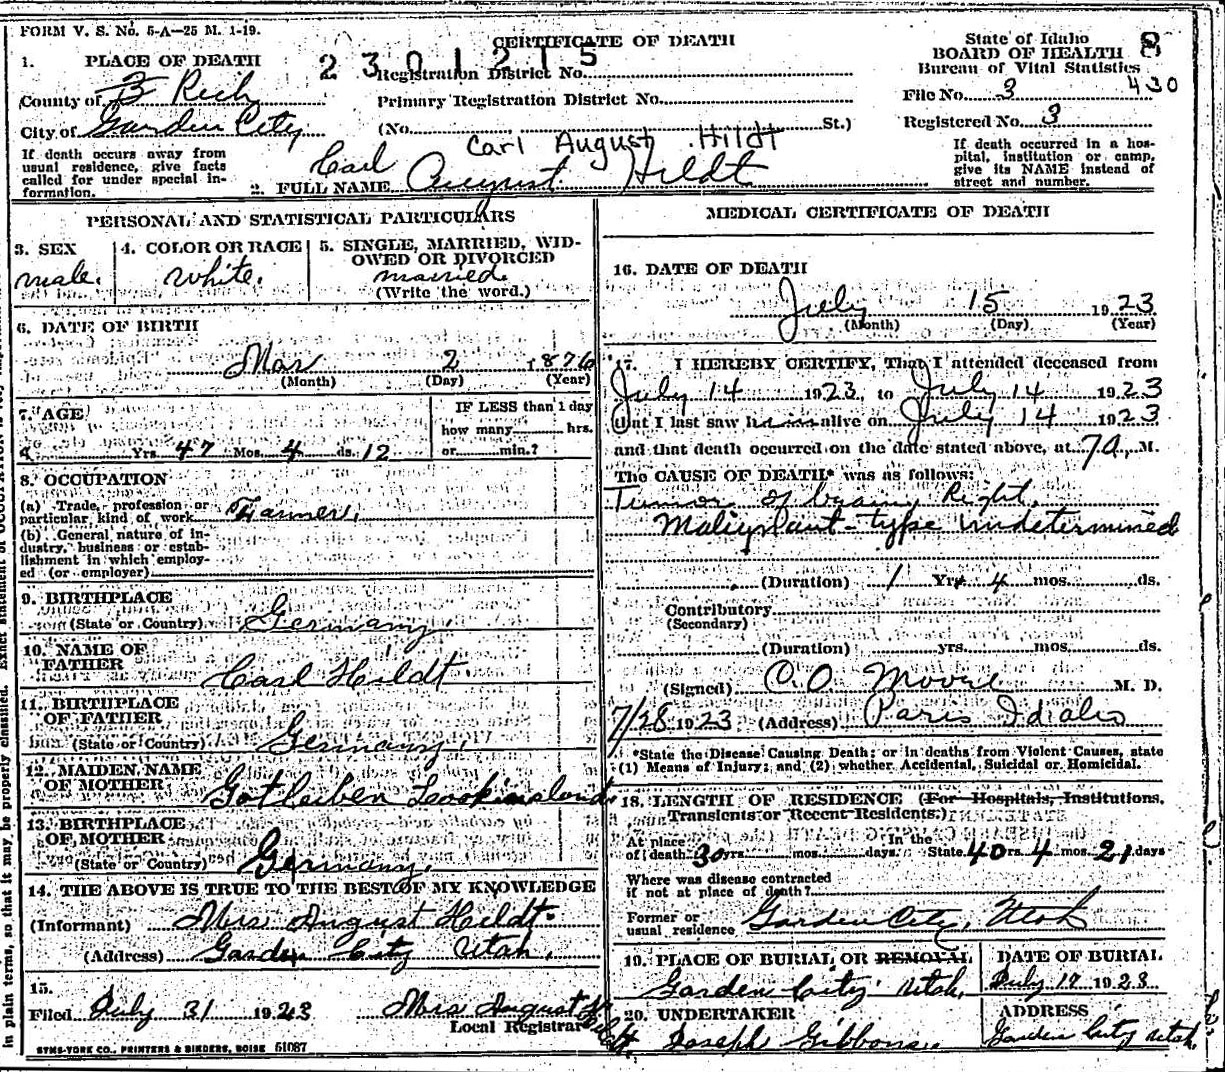 FORM V. S. No. 5-A—25 M. 1-19.
CERTIFICATE OF DEATH
State of Idaho
BOARD OF HEALTH 8
Bureau of Vital Statistics
2301215
1. PLACE OF DEATH
Registration District No.
County of Rich
Primary Registration District No.
File No. 3 430
City of Garden City
(No. St.)
Registered No. 3
If death occurs away from
usual residence, give facts
called for under special in-
formation.
Carl August Hildt
2. FULL NAME Carl August Hildt
If death occurred in a hos-
pital, institution or camp,
give its NAME instead of
street and number.
PERSONAL AND STATISTICAL PARTICULARS
3. SEX
male.
4. COLOR OR RACE
White.
5. SINGLE, MARRIED, WID-
OWED OR DIVORCED
married
(Write the word.)
6. DATE OF BIRTH
Mar 2 1876
(Month) (Day) (Year)
7. AGE
Yrs. 47 Mos. 4 ds. 12
IF LESS than 1 day
how many hrs.
or min.?
8. OCCUPATION
(a) Trade, profession or
particular kind of work Farmer.
(b) General nature of in-
dustry, business or estab-
lishment in which employ-
ed (or employer)
9. BIRTHPLACE
(State or Country) Germany
10. NAME OF
FATHER Carl Hildt
11. BIRTHPLACE
OF FATHER
(State or Country) Germany.
12. MAIDEN NAME
OF MOTHER Gotleiben
13. BIRTHPLACE
OF MOTHER
(State or Country) Germany.
14. THE ABOVE IS TRUE TO THE BEST OF MY KNOWLEDGE
(Informant) Mrs August Hildt.
(Address) Garden City Utah.
15.
Filed July 31 1923 Mrs August Hildt
Local Registrar
SYMS-YORK CO., PRINTERS & BINDERS, BOISE 61087
MEDICAL CERTIFICATE OF DEATH
16. DATE OF DEATH
July 15 1923
(Month) (Day) (Year)
17. I HEREBY CERTIFY, That I attended deceased from
July 14 1923, to July 14 1923
that I last saw him alive on July 14 1923
and that death occurred on the date stated above, at 7a. M.
The CAUSE OF DEATH* was as follows:
Tumor of brain, Right,
Malignant - type undetermined
(Duration) 1 Yrs 4 mos. ds.
Contributory
(Secondary)
(Duration) yrs. mos. ds.
(Signed) C.O. Moore M. D.
7/28 1923 (Address) Paris Idaho
*State the Disease Causing Death; or in deaths from Violent Causes, state
(1) Means of Injury; and (2) whether Accidental, Suicidal or Homicidal.
18. LENGTH OF RESIDENCE (For Hospitals, Institutions,
Transients or Recent Residents.)
At place In the
of death 30 yrs. mos. days. State 40 rs. 4 mos. 21 days
Where was disease contracted
if not at place of death?
Former or
usual residence Garden City, Utah
19. PLACE OF BURIAL OR REMOVAL
Garden City Utah.
DATE OF BURIAL
July 17 1923
20. UNDERTAKER
Joseph Gibbons
ADDRESS
Garden City Utah.